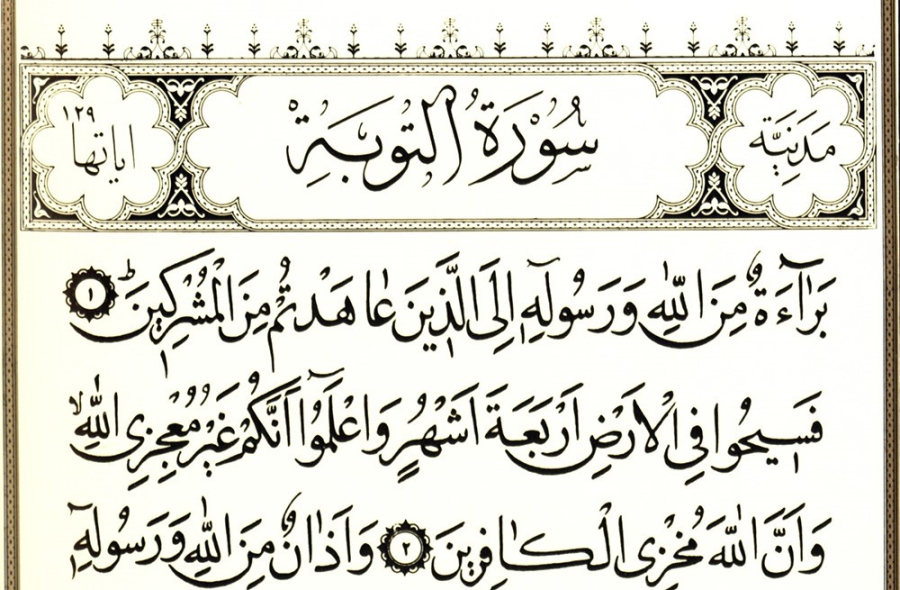 مَدَنِيَّة
سُورَةُ التَّوْبَةِ
اياتها ١٢٩
بَرَٓاءَةٌ مِنَ اللّٰهِ وَرَسُولِهٖٓ اِلَى الَّذٖينَ عَاهَدْتُمْ مِنَ الْمُشْرِكٖينَ ط ١
فَسٖيحُوا فِي الْاَرْضِ اَرْبَعَةَ اَشْهُرٍ وَاعْلَمُٓوا اَنَّكُمْ غَيْرُ مُعْجِزِي اللّٰهِ لا
وَاَنَّ اللّٰهَ مُخْزِي الْكَافِرٖينَ ٢ وَاَذَانٌ مِنَ اللّٰهِ وَرَسُولِهٖٓ